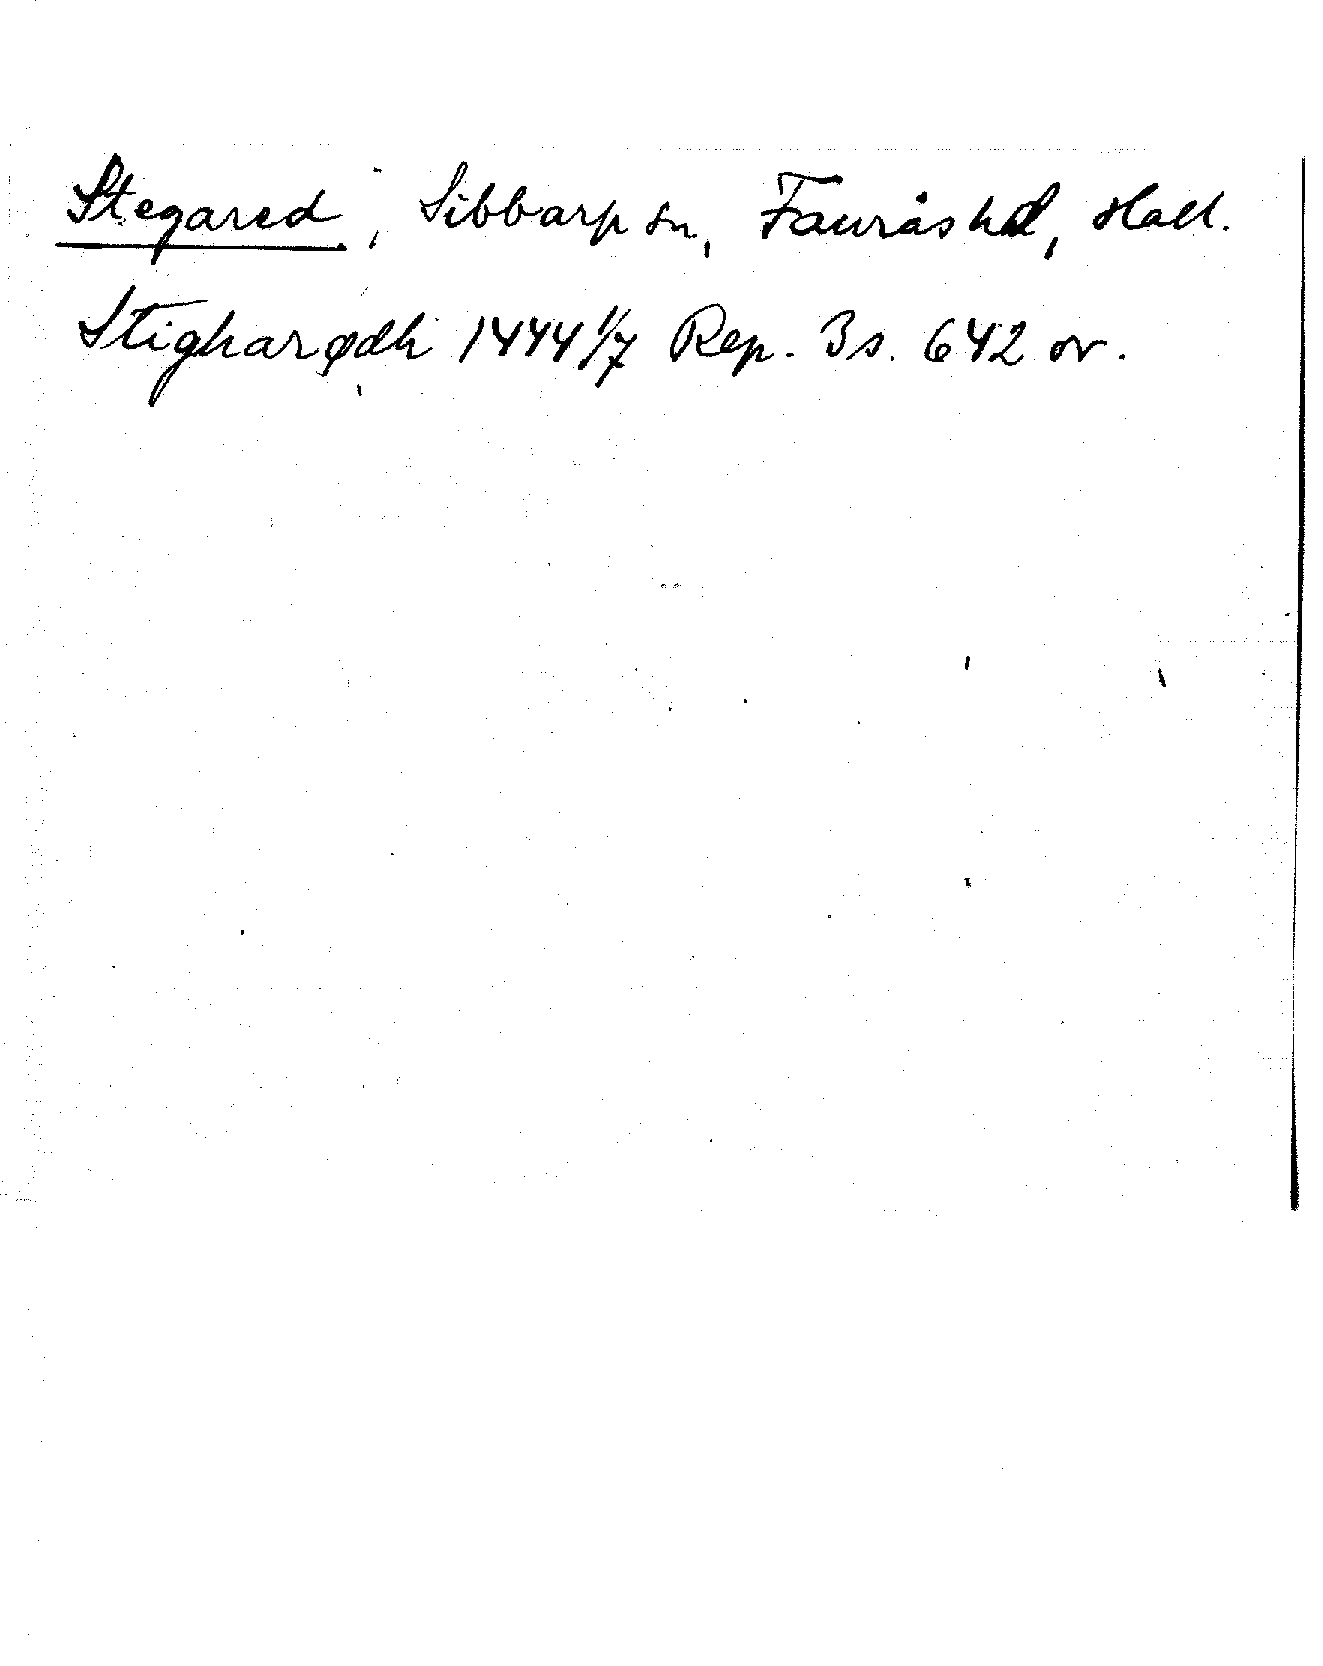 Stegared, Sibbarp sn, Faurås hd, Hall.
Stigharødh 1444 1/7 Rep. 3 s. 642 or.